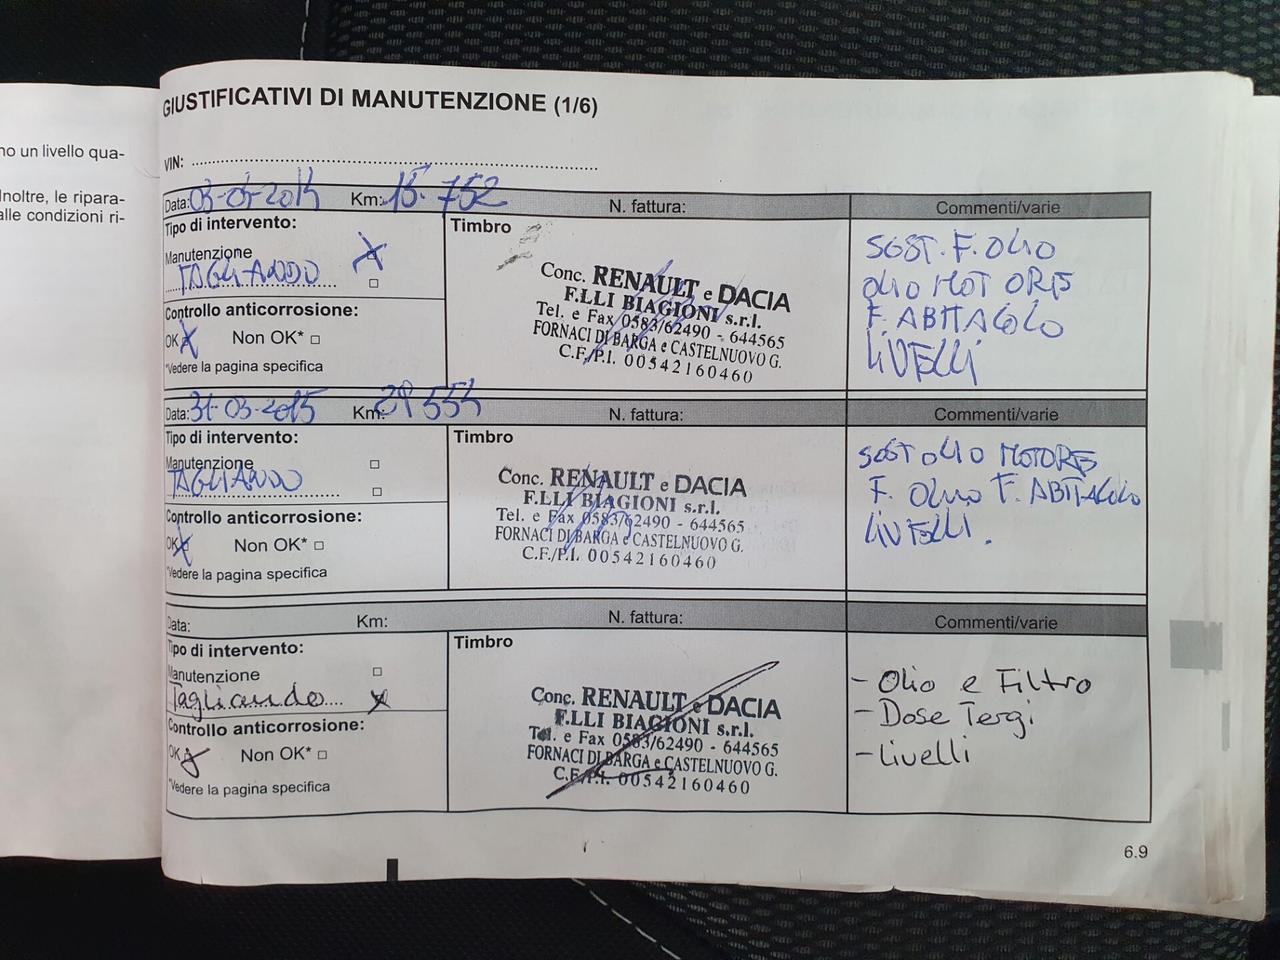 no un livello qua-
Inoltre, le ripara-
alle condizioni ri-
GIUSTIFICATIVI DI MANUTENZIONE (1/6)
VIN:
Data: 03-03-2014 Km: 15.752 N. fattura: Commenti/varie
Tipo di intervento:
Manutenzione
TAGLIANDO
Controllo anticorrosione:
OK Non OK*
*Vedere la pagina specifica
Timbro
Conc. RENAULT e DACIA
F.LLI BIAGIONI s.r.l.
Tel. e Fax 0583/62490 - 644565
FORNACI DI BARGA e CASTELNUOVO G.
C.F./P.I. 00542160460
SOST. F. OLIO
OLIO MOTORE
F. ABITACOLO
LIVELLI
Data: 31-03-2015 Km: 29553 N. fattura: Commenti/varie
Tipo di intervento:
Manutenzione
TAGLIANDO
Controllo anticorrosione:
OK Non OK*
*Vedere la pagina specifica
Timbro
Conc. RENAULT e DACIA
F.LLI BIAGIONI s.r.l.
Tel. e Fax 0583/62490 - 644565
FORNACI DI BARGA e CASTELNUOVO G.
C.F./P.I. 00542160460
SOST OLIO MOTORE
F. OLIO F. ABITACOLO
LIVELLI.
Data: Km: N. fattura: Commenti/varie
Tipo di intervento:
Manutenzione
Tagliando
Controllo anticorrosione:
OK Non OK*
*Vedere la pagina specifica
Timbro
Conc. RENAULT e DACIA
F.LLI BIAGIONI s.r.l.
Tel. e Fax 0583/62490 - 644565
FORNACI DI BARGA e CASTELNUOVO G.
C.F./P.I. 00542160460
- Olio e Filtro
- Dose Tergi
- Livelli
6.9